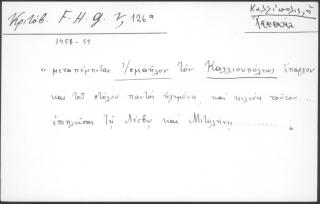 Καλλίπολις, ἡ
Κριτόβ. F.H.G. V, 126ᵃ
1458-59
" μεταπέμπεται Ἰσμαῆλον τὸν Καλλιουπόλεως ἔπαρχον
καὶ τοῦ στόλου παντὸς ἡγεμόνα, καὶ κελεύει τοῦτον ....
ἐπιπλεῦσαι τῇ Λέσβῳ καὶ Μιτυλήνῃ ........... "